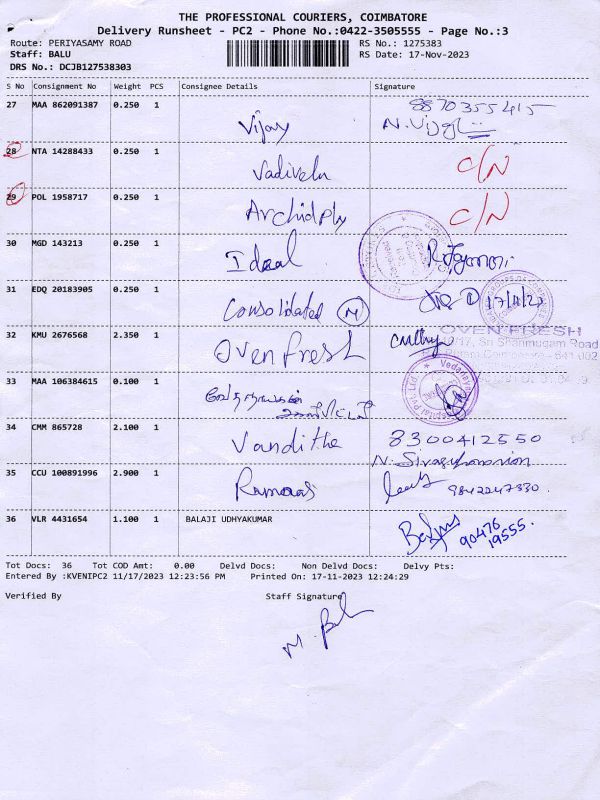 THE PROFESSIONAL COURIERS, COIMBATORE
Delivery Runsheet - PC2 - Phone No.:0422-3505555 - Page No.:3
Route: PERIYASAMY ROAD RS No.: 1275383
Staff: BALU RS Date: 17-Nov-2023
DRS No.: DCJB127538303
S No Consignment No Weight PCS Consignee Details Signature
27 MAA 862091387 0.250 1 Vijay 8870355415
28 NTA 14288433 0.250 1 Vadivelu C/N
29 POL 1958717 0.250 1 Archidply C/N
30 MGD 143213 0.250 1 Ideal
31 EDQ 20183905 0.250 1 Consolidated (M)
32 KMU 2676568 2.350 1 Oven Fresh
OVEN FRESH
Sri Shanmugam Road
33 MAA 106384615 0.100 1
34 CMM 865728 2.100 1 Vanditha 8300412550
35 CCU 100891996 2.900 1 Ramraj 9842247330
36 VLR 4431654 1.100 1 BALAJI UDHYAKUMAR 90476
19555.
Tot Docs: 36 Tot COD Amt: 0.00 Delvd Docs: Non Delvd Docs: Delvy Pts:
Entered By :KVENIPC2 11/17/2023 12:23:56 PM Printed On: 17-11-2023 12:24:29
Verified By Staff Signature